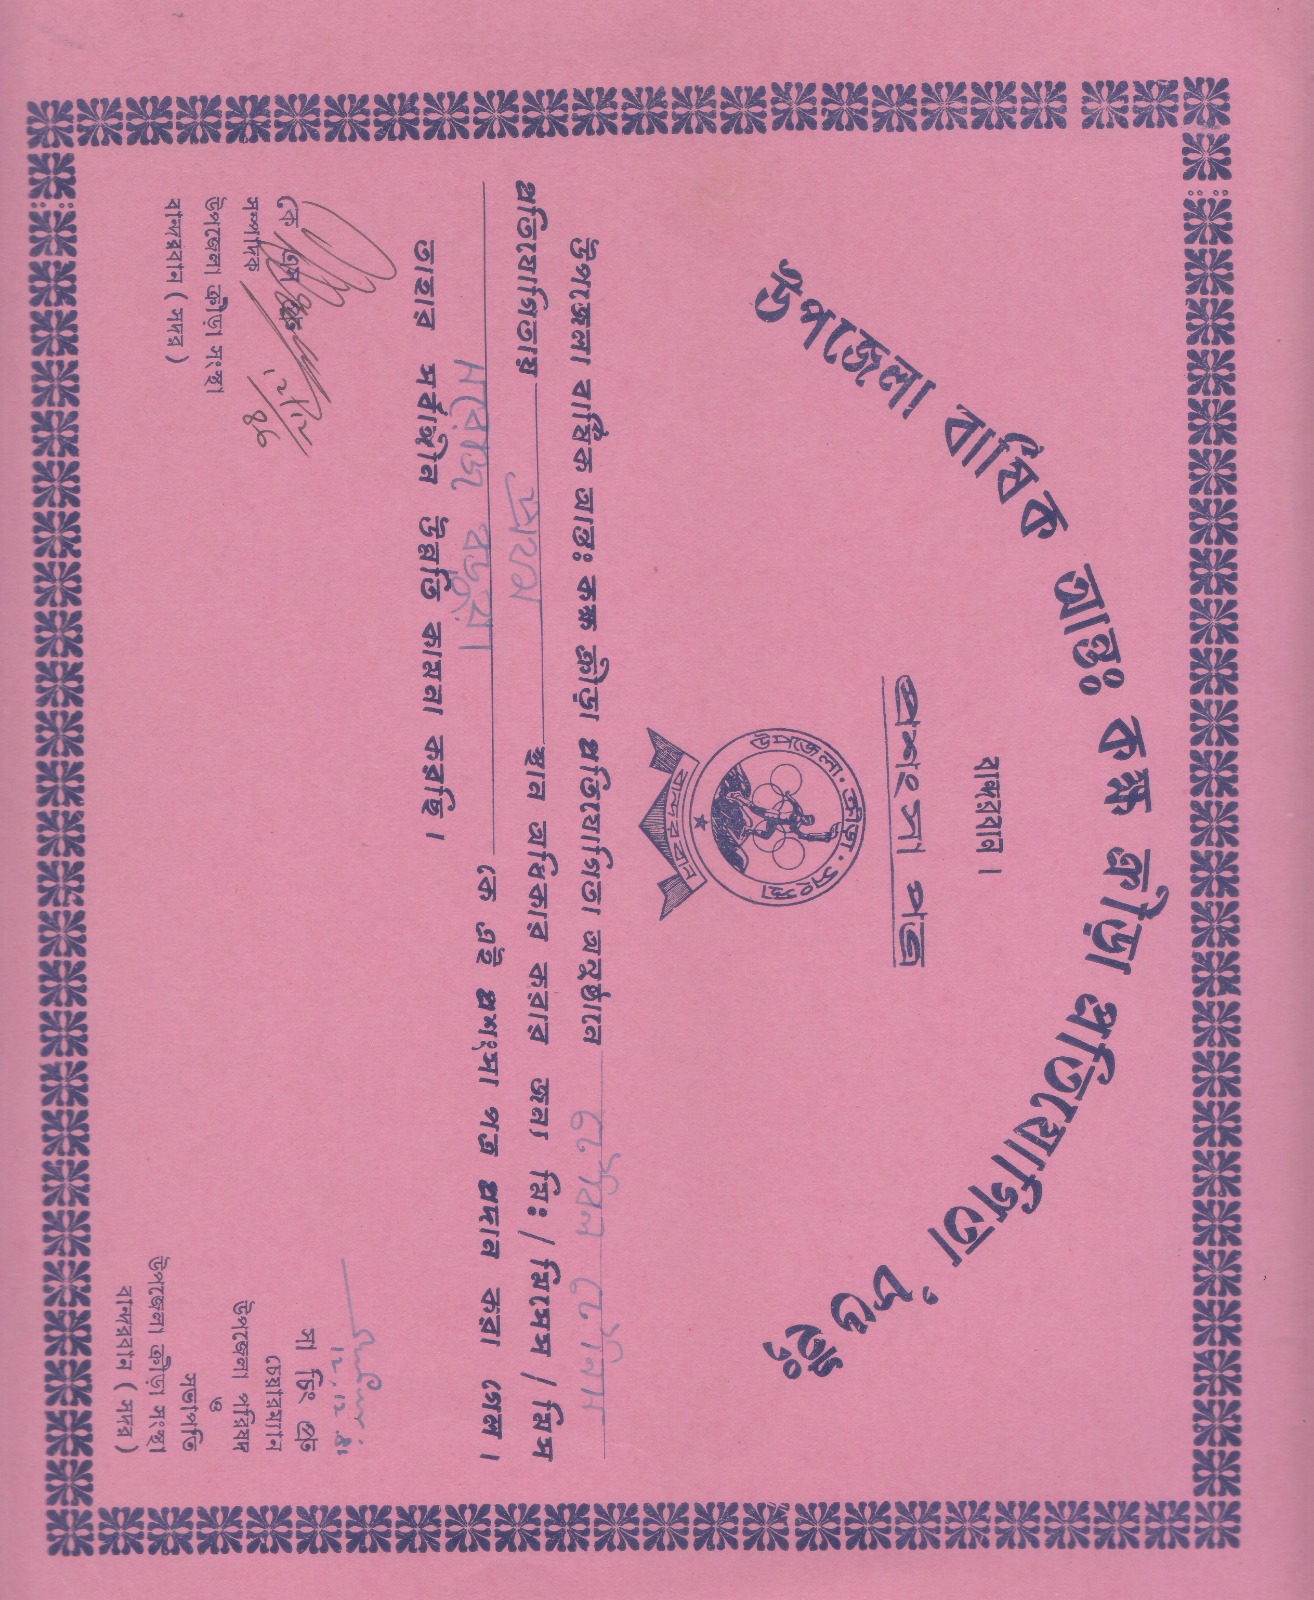 উপজেলা বার্ষিক আন্তঃ কক্ষ ক্রীড়া প্রতিযোগিতা '৮৬ ইং
বান্দরবান ।
প্রশংসা পত্র
উপজেলা · ক্রীড়া · সংস্থা
বান্দরবান
উপজেলা বার্ষিক আন্তঃ কক্ষ ক্রীড়া প্রতিযোগিতা অনুষ্ঠানে টেবিল টেনিস
প্রতিযোগিতায় প্রথম স্থান অধিকার করার জন্য মিঃ / মিসেস / মিস
সরোজ বড়ুয়া কে এই প্রশংসা পত্র প্রদান করা গেল ।
তাহার সর্বাঙ্গীন উন্নতি কামনা করছি ।
12/12/86
কে এস প্রু
সম্পাদক
উপজেলা ক্রীড়া সংস্থা
বান্দরবান ( সদর )
12.12.86
সা চিং প্রু
চেয়ারম্যান
উপজেলা পরিষদ
ও
সভাপতি
উপজেলা ক্রীড়া সংস্থা
বান্দরবান ( সদর )